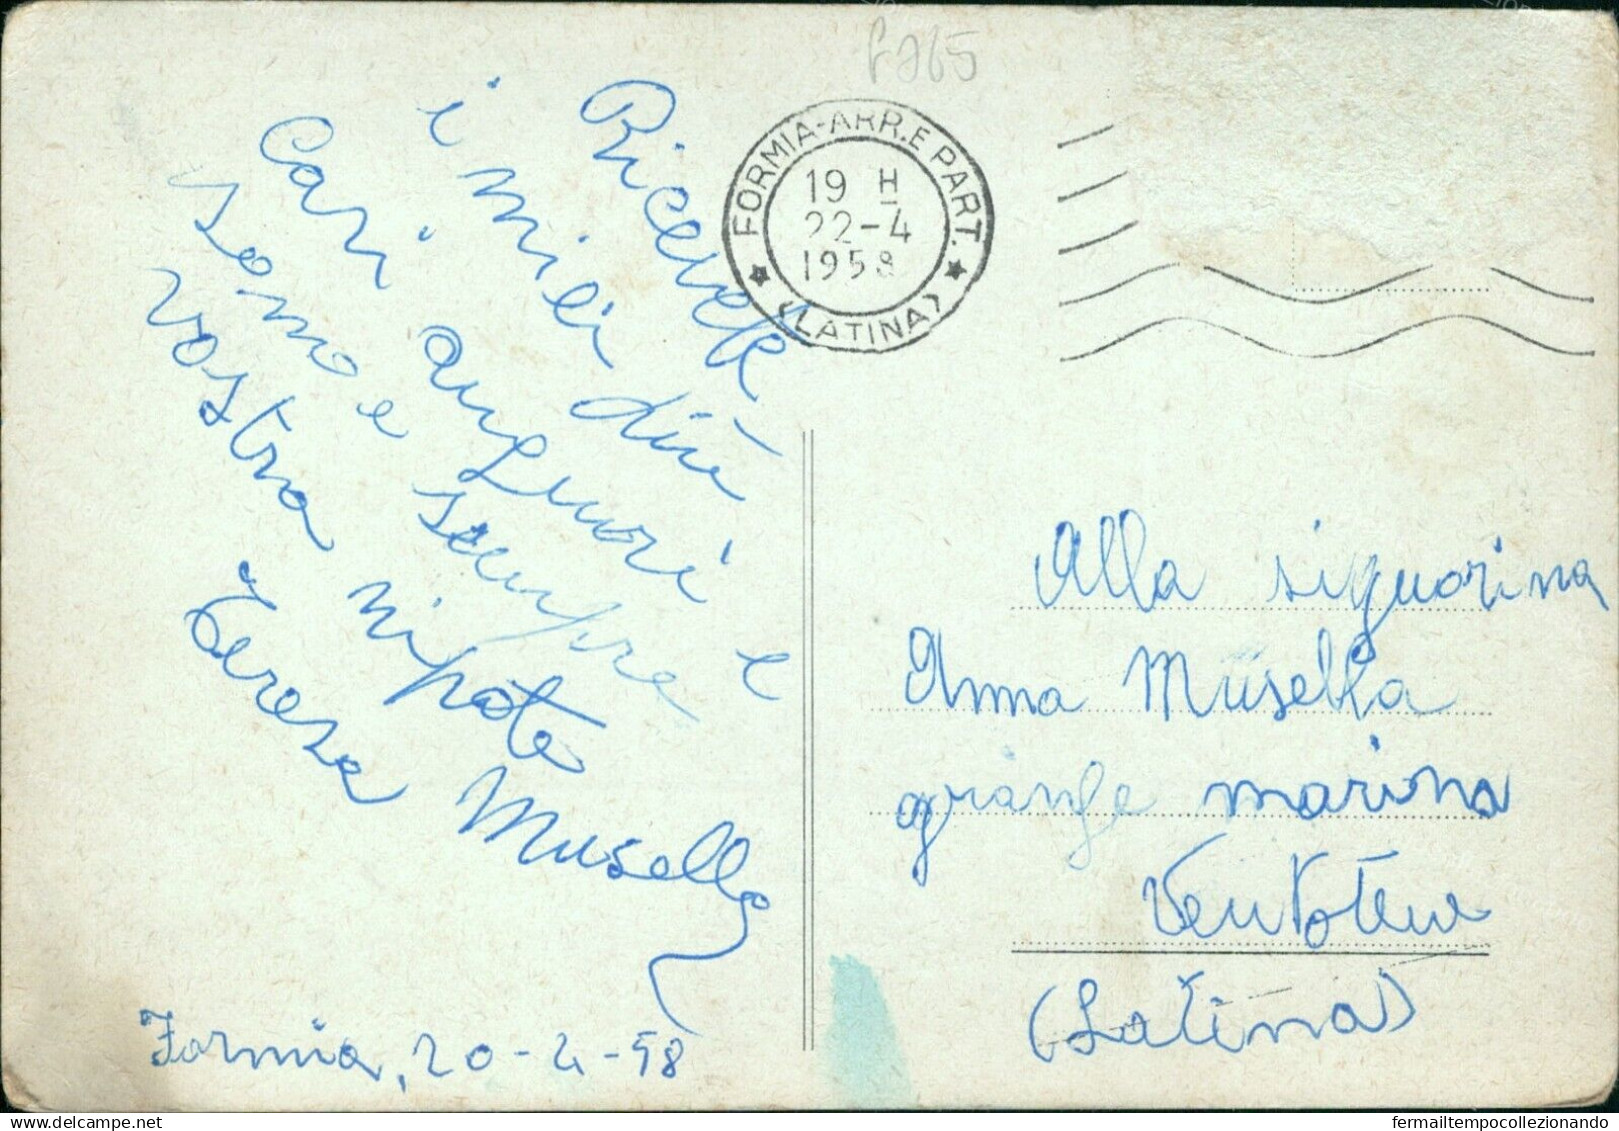 FORMIA-ARR.E PART.
19 H
22-4
1958
(LATINA)
Ricevete
i miei più
cari auguri e
sono e sempre
vostra nipote
Teresa Musella
Formia, 20-4-58
Alla signorina
Anna Musella
marina
Ventotene
(Latina)
fermailtempocollezionando